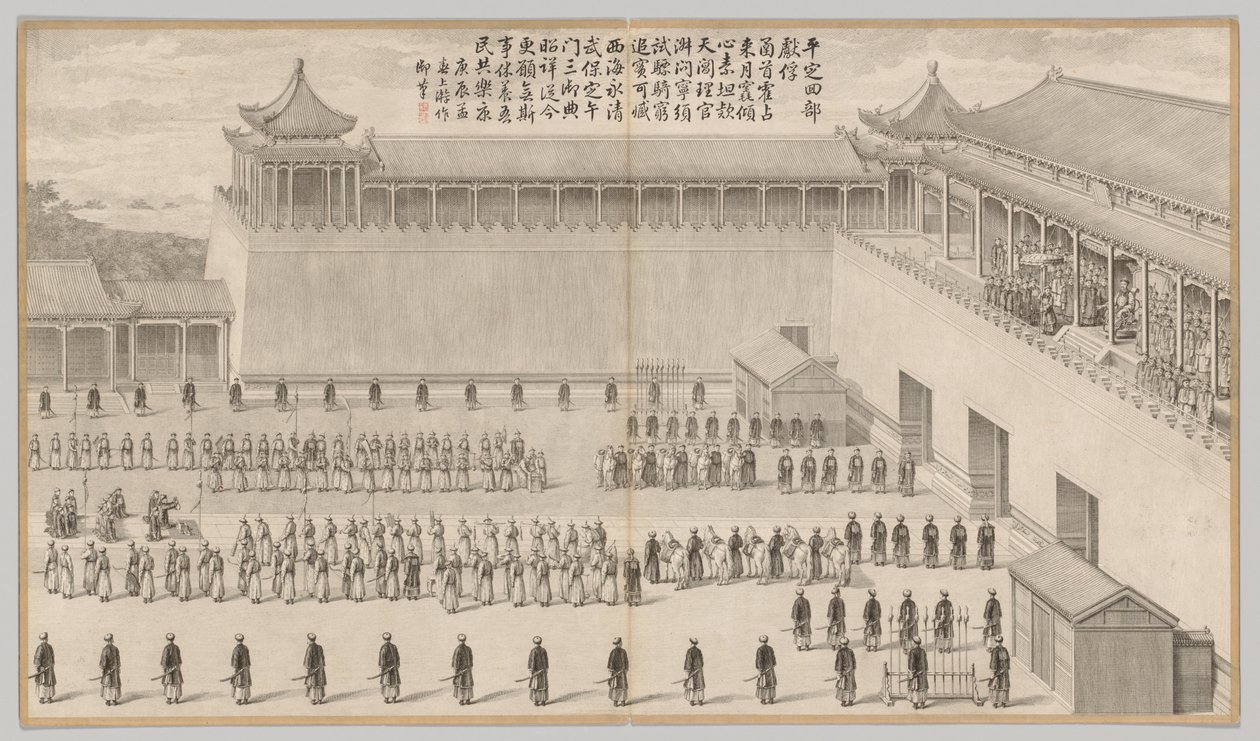 平定回部
獻俘
圅首霍占
来月竁傾
心素坦欵
天閶理官
淑问寧須
試驃騎窮
追實可臧
西海永清
武保定午
门三御典
昭详従今
更願無斯
事休養吾
民共樂康
庚辰孟
春上澣作
御筆